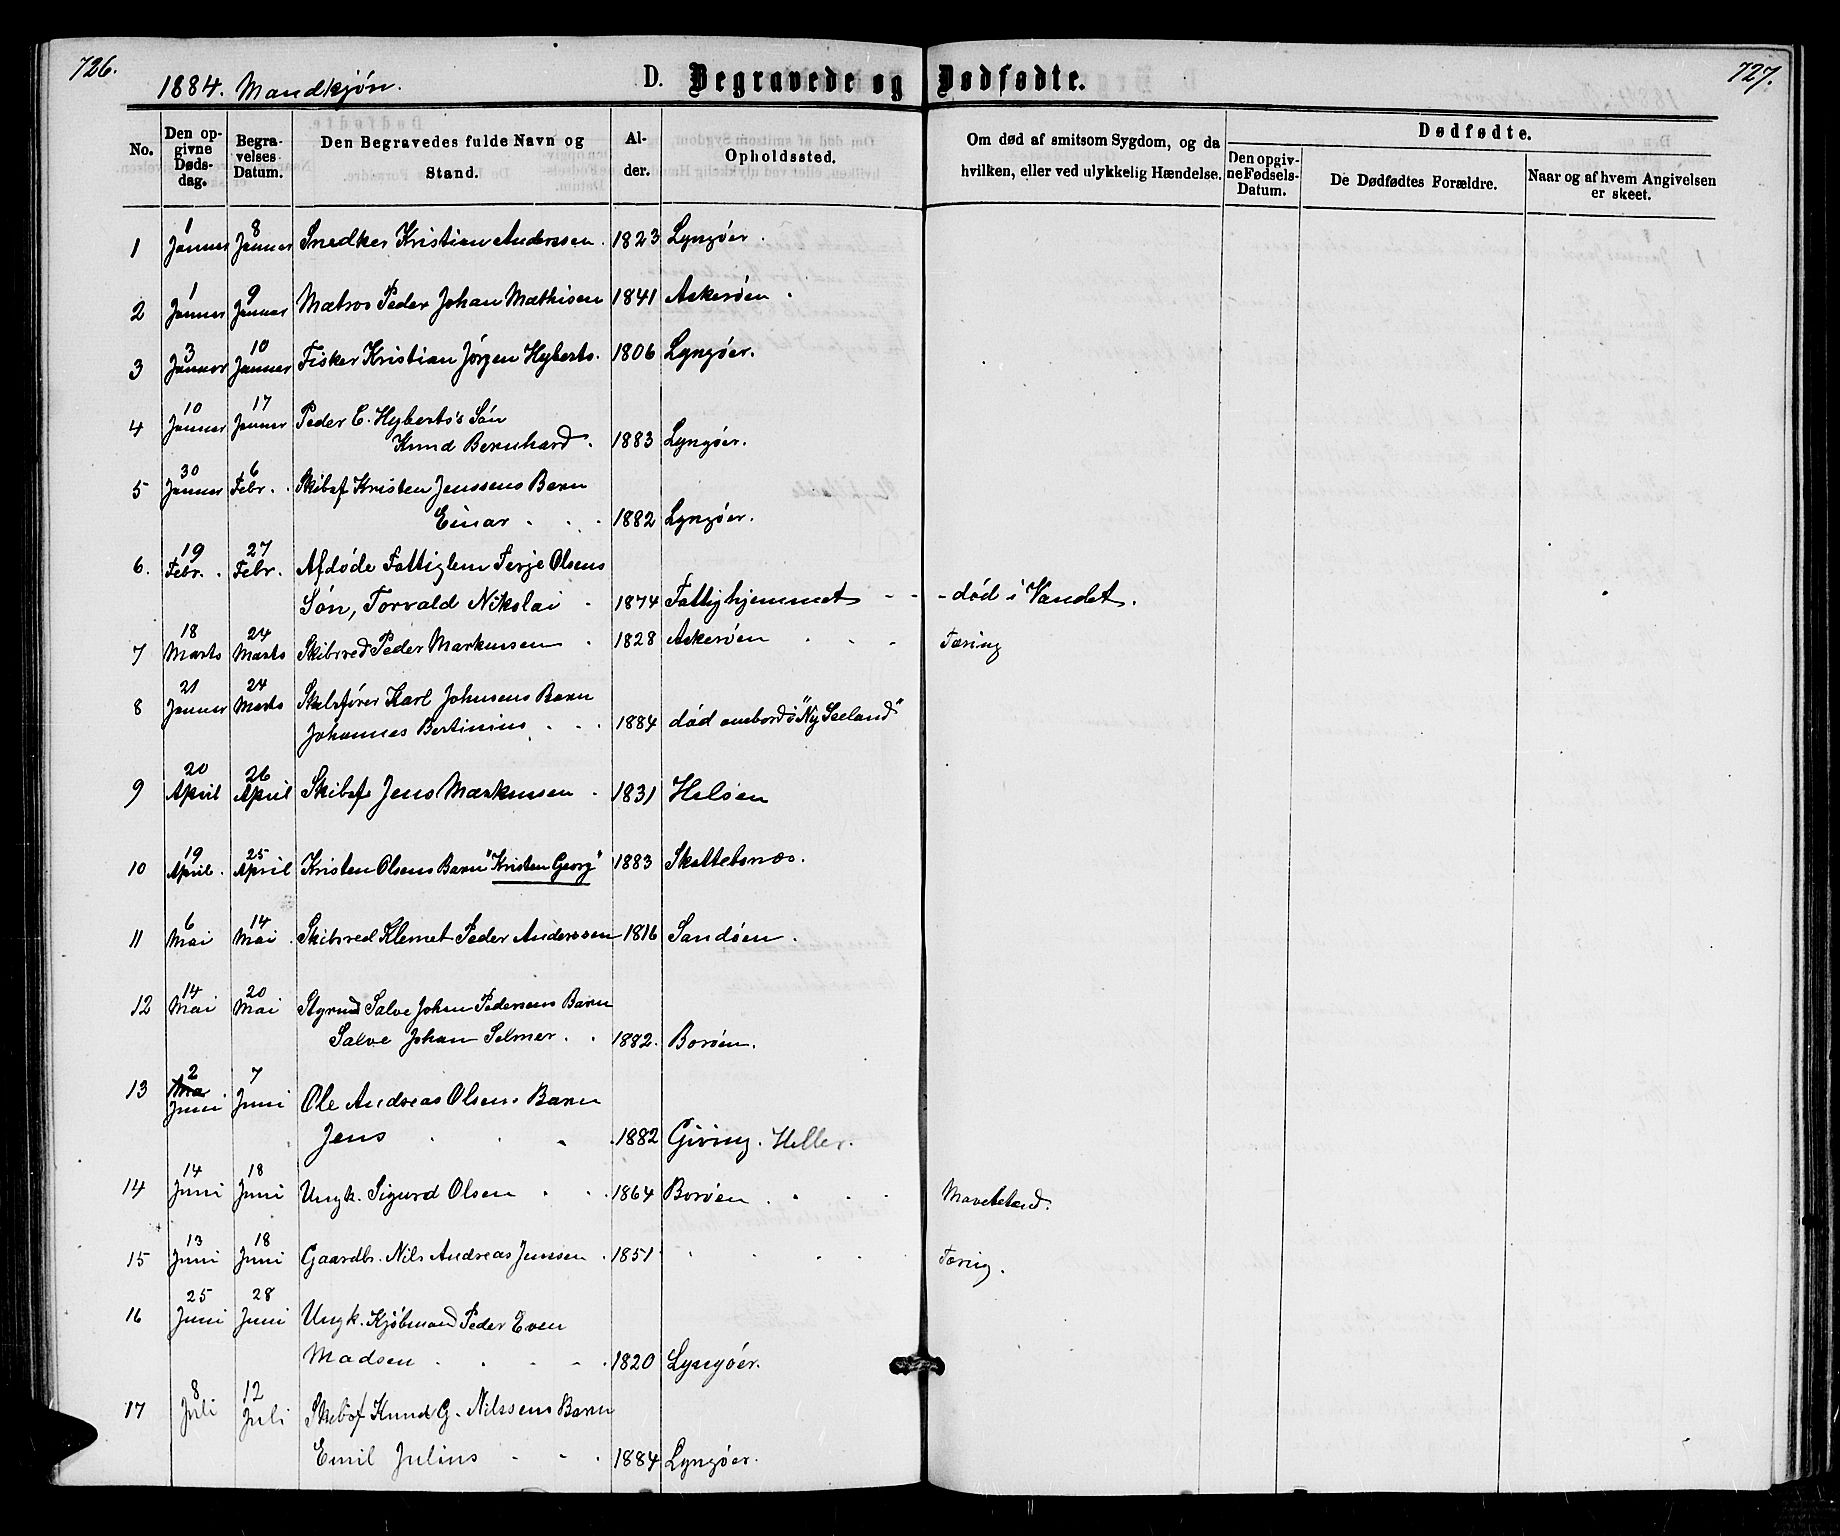 726.
1884. Mandkjøn.
D. Begravede og Dødfødte.
727.
No. | Den opgivne Dødsdag. | Begravelses Datum. | Den Begravedes fulde Navn og Stand. | Alder. | Opholdssted. | Om død af smitsom Sygdom, og da hvilken, eller ved ulykkelig Hændelse. | Dødfødte. | Den opgivne Fødsels-Datum. | De Dødfødtes Forældre. | Naar og af hvem Angivelsen er skeet.
1 | 1 Januar | 8 Januar | Snedker Kristian Andersen. | 1823 | Lyngøer.
2 | 1 Januar | 9 Januar | Matros Peder Johan Mathisen | 1841 | Askerøen.
3 | 3 Januar | 10 Januar | Fisker Kristian Jørgen Hyberts. | 1806 | Lyngøer.
4 | 10 Januar | 17 Januar | Peder C. Hyberts's Søn
Knud Bernhard. | 1883 | Lyngøer.
5 | 30 Januar | 6 Febr. | Skibsf Kristen Jenssens Barn
Einar | 1882 | Lyngøer.
6. | 19 Febr. | 27 Febr. | Afdøde Fattiglem Terje Olsens
Søn, Torvald Nikolai | 1874 | Fattighjemmet | død i Vandet.
7 | 18 Marts | 24 Marts | Skibsred Peder Markussen | 1828 | Askerøen | Tæring
8 | 21 Januar | 24 Marts | Skibsfører Karl Johnsens Barn
Johannes Bertinius | 1884 | død ombord i "Ny Seeland"
9 | 20 April | 26 April | Skibsf Jens Markussen | 1831 | Holøen
10 | 19 April. | 25 April | Kristen Olsens Barn "Kristen Georg" | 1883 | Skottetsnæs.
11 | 6 Mai | 14 Mai | Skibsred Klemet Peder Anderssen | 1816 | Sandøen.
12 | 14 Mai | 20 Mai | Styrmd Salve Johan Pedersens Barn
Salve Johan Selmer. | 1882. | Borøen.
13 | 2 Juni | 7 Juni | Ole Andreas Olsens Barn
Jens | 1882 | Giving. Heller.
14 | 14 Juni | 18 Juni | Ungk. Sigurd Olsen | 1864 | Borøen | Mavebetænd.
15 | 13 Juni | 18 Juni | Gaardbr. Nils Andreas Jenssen | 1851 | Tæring.
16 | 25 Juni | 28 Juni | Ungk. Kjøbmand Peder Even
Madsen | 1820 | Lyngøer.
17 | 8 Juli | 12 Juli | Skibsf Knud G. Nilssens Barn
Emil Julius | 1884 | Lyngøer.